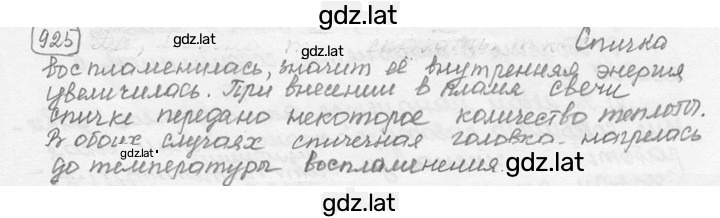 gdz.lat
925 Спичка
gdz.lat
воспламенилась, значит её внутренняя энергия
увеличилась. При внесении в пламя свечи
спичке передано некоторое количество теплоты.
В обоих случаях спичечная головка нагрелась
gdz.lat gdz.lat
до температуры воспламенения.
gdz.lat